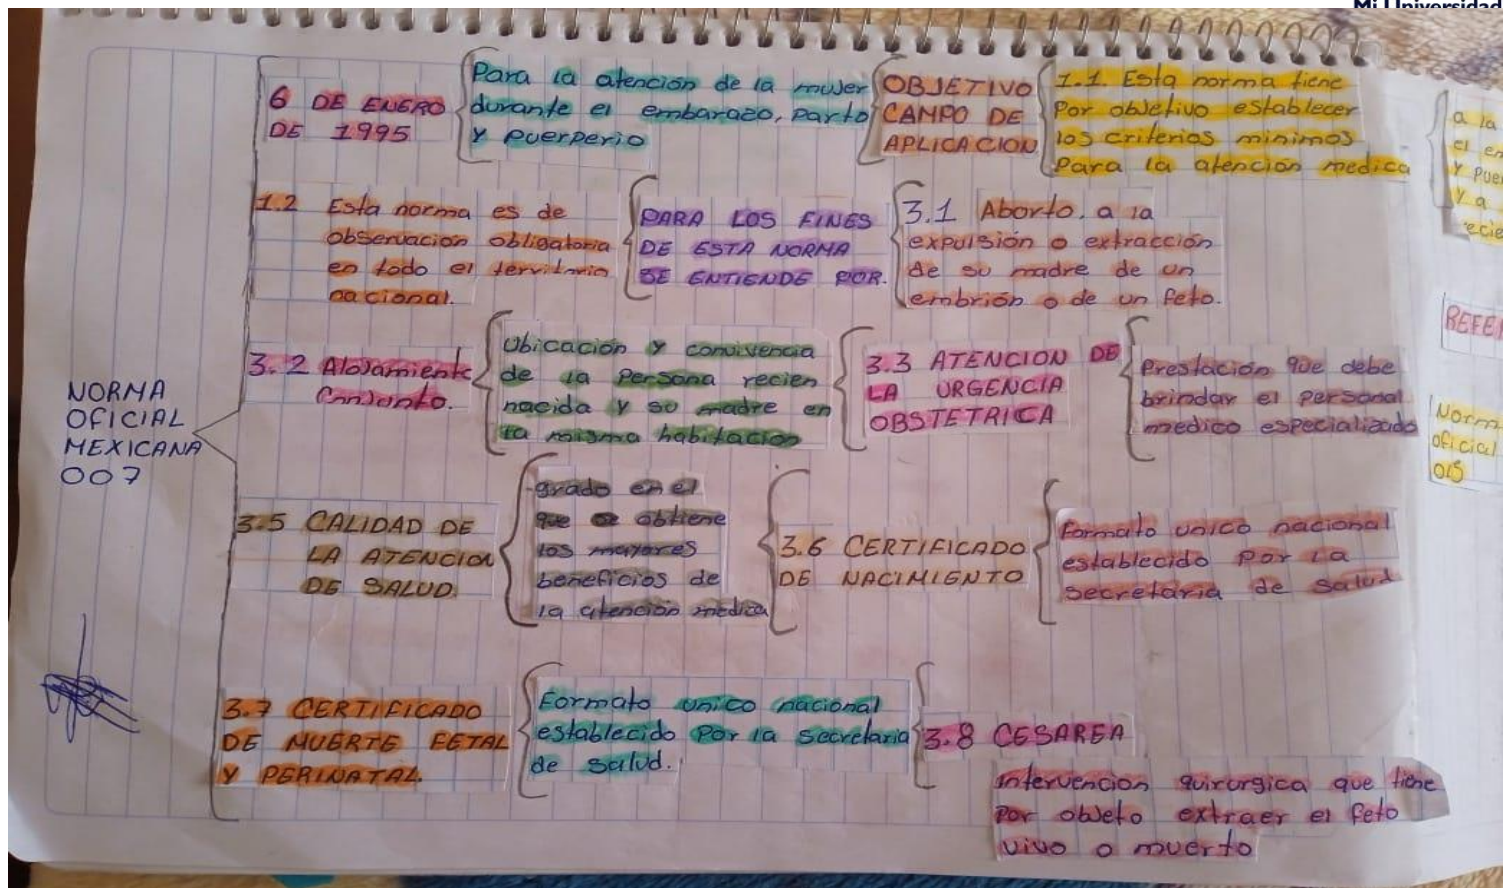 Mi Universidad
NORMA
OFICIAL
MEXICANA
007
6 DE ENERO
DE 1995
Para la atención de la mujer
durante el embarazo, parto
y puerperio
OBJETIVO
CAMPO DE
APLICACION
1.1 Esta norma tiene
Por objetivo establecer
los criterios minimos
Para la atención medica
1.2 Esta norma es de
observación obligatoria
en todo el territorio
nacional.
PARA LOS FINES
DE ESTA NORMA
SE ENTIENDE POR.
3.1 Aborto. a la
expulsión o extracción
de su madre de un
embrión o de un feto.
3.2 Alojamiento
Conjunto.
Ubicación y convivencia
de la persona recien
nacida y su madre en
la misma habitación
3.3 ATENCION DE
LA URGENCIA
OBSTETRICA
Prestación que debe
brindar el personal
medico especializado
3.5 CALIDAD DE
LA ATENCION
DE SALUD.
grado en el
que se obtiene
los mayores
beneficios de
la atención medica
3.6 CERTIFICADO
DE NACIMIENTO
Formato unico nacional
establecido por la
secretaria de salud
3.7 CERTIFICADO
DE MUERTE FETAL
Y PERINATAL.
Formato unico nacional
establecido Por la secretaria
de salud.
3.8 CESAREA
intervencion quirurgica que tiene
por objeto extraer el feto
vivo o muerto
a la
y a
Norm
oficial